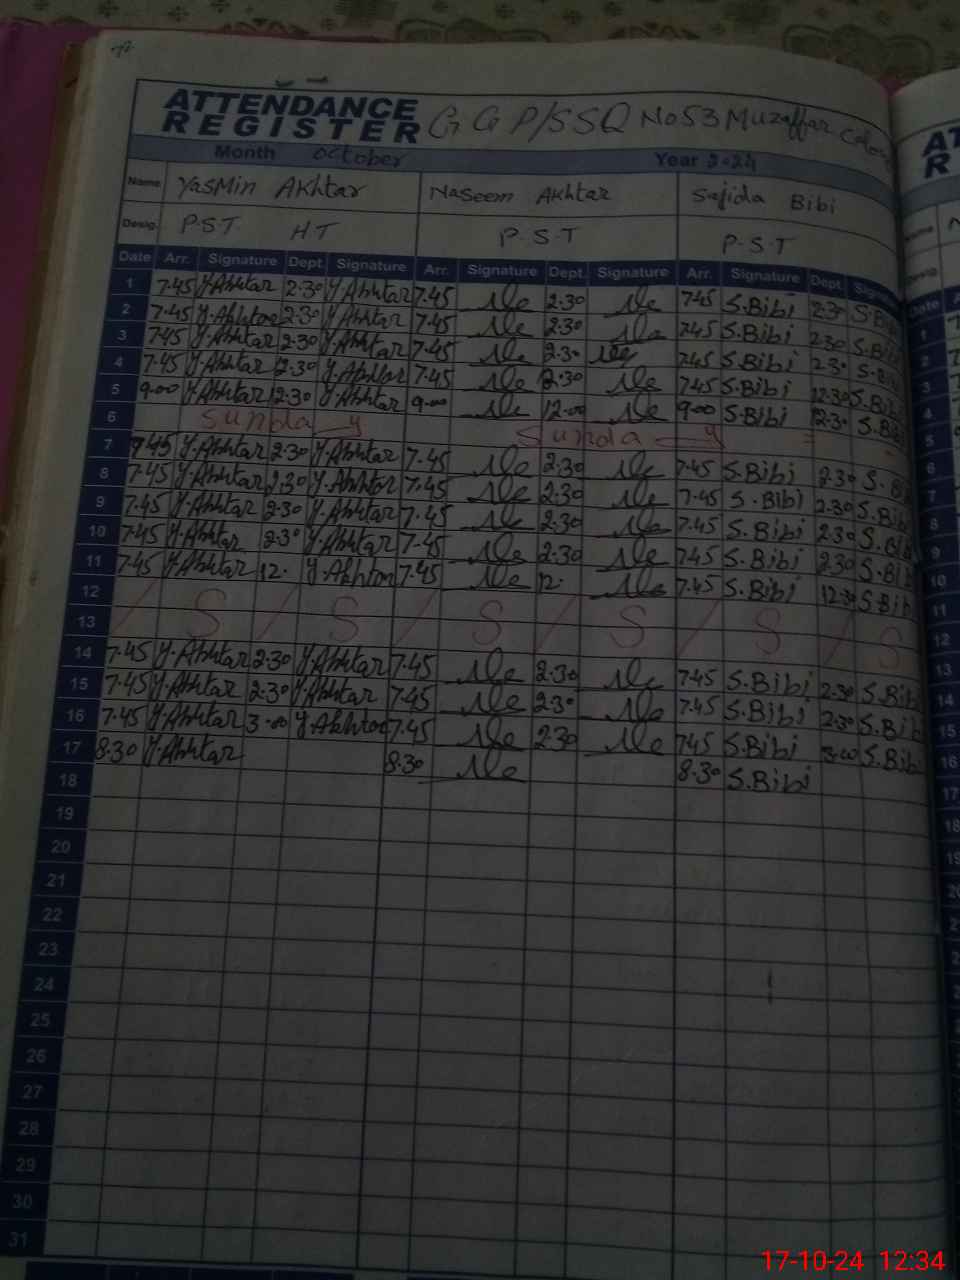 ATTENDANCE
REGISTER GGP/SSQ No 53 Muzaffar
Month October Year 2024
Name Yasmin Akhtar Naseem Akhtar Sajida Bibi
Desig. P.S.T HT P.S.T P.S.T
Date Arr. Signature Dept. Signature Arr. Signature Dept. Signature Arr. Signature Dept.
1 7.45 Y.Akhtar 2.30 Y.Akhtar 7.45 2.30 7.45 S.Bibi 2.30 S.Bibi
2 7.45 Y.Akhtar 2.30 Y.Akhtar 7.45 2.30 7.45 S.Bibi 2.30 S.Bibi
3 7.45 Y.Akhtar 2.30 Y.Akhtar 7.45 2.30 7.45 S.Bibi 2.30 S.Bibi
4 7.45 Y.Akhtar 12.30 Y.Akhtar 7.45 7.45 S.Bibi 12.30 S.Bibi
5 9.00 Y.Akhtar 12.30 Y.Akhtar 9.00 12.00 9.00 S.Bibi 12.30 S.Bibi
6 Sunday Sunday
7 7.45 Y.Akhtar 2.30 Y.Akhtar 7.45 2.30 7.45 S.Bibi 2.30 S.Bibi
8 7.45 Y.Akhtar 2.30 Y.Akhtar 7.45 2.30 7.45 S.Bibi 2.30 S.Bibi
9 7.45 Y.Akhtar 2.30 Y.Akhtar 7.45 2.30 7.45 S.Bibi 2.30 S.Bibi
10 7.45 Y.Akhtar 2.30 Y.Akhtar 7.45 2.30 7.45 S.Bibi 2.30 S.Bibi
11 7.45 Y.Akhtar 12. Y.Akhtar 7.45 12. 7.45 S.Bibi 12.30 S.Bibi
12
13 / S / S / S / S / S / S
14 7.45 Y.Akhtar 2.30 Y.Akhtar 7.45 2.30 7.45 S.Bibi 2.30 S.Bibi
15 7.45 Y.Akhtar 2.30 Y.Akhtar 7.45 2.30 7.45 S.Bibi 2.30 S.Bibi
16 7.45 Y.Akhtar 3.00 Y.Akhtar 7.45 2.30 7.45 S.Bibi 3.00 S.Bibi
17 8.30 Y.Akhtar 8.30 8.30 S.Bibi
18
19
20
21
22
23
24
25
26
27
28
29
30
31
17-10-24 12:34